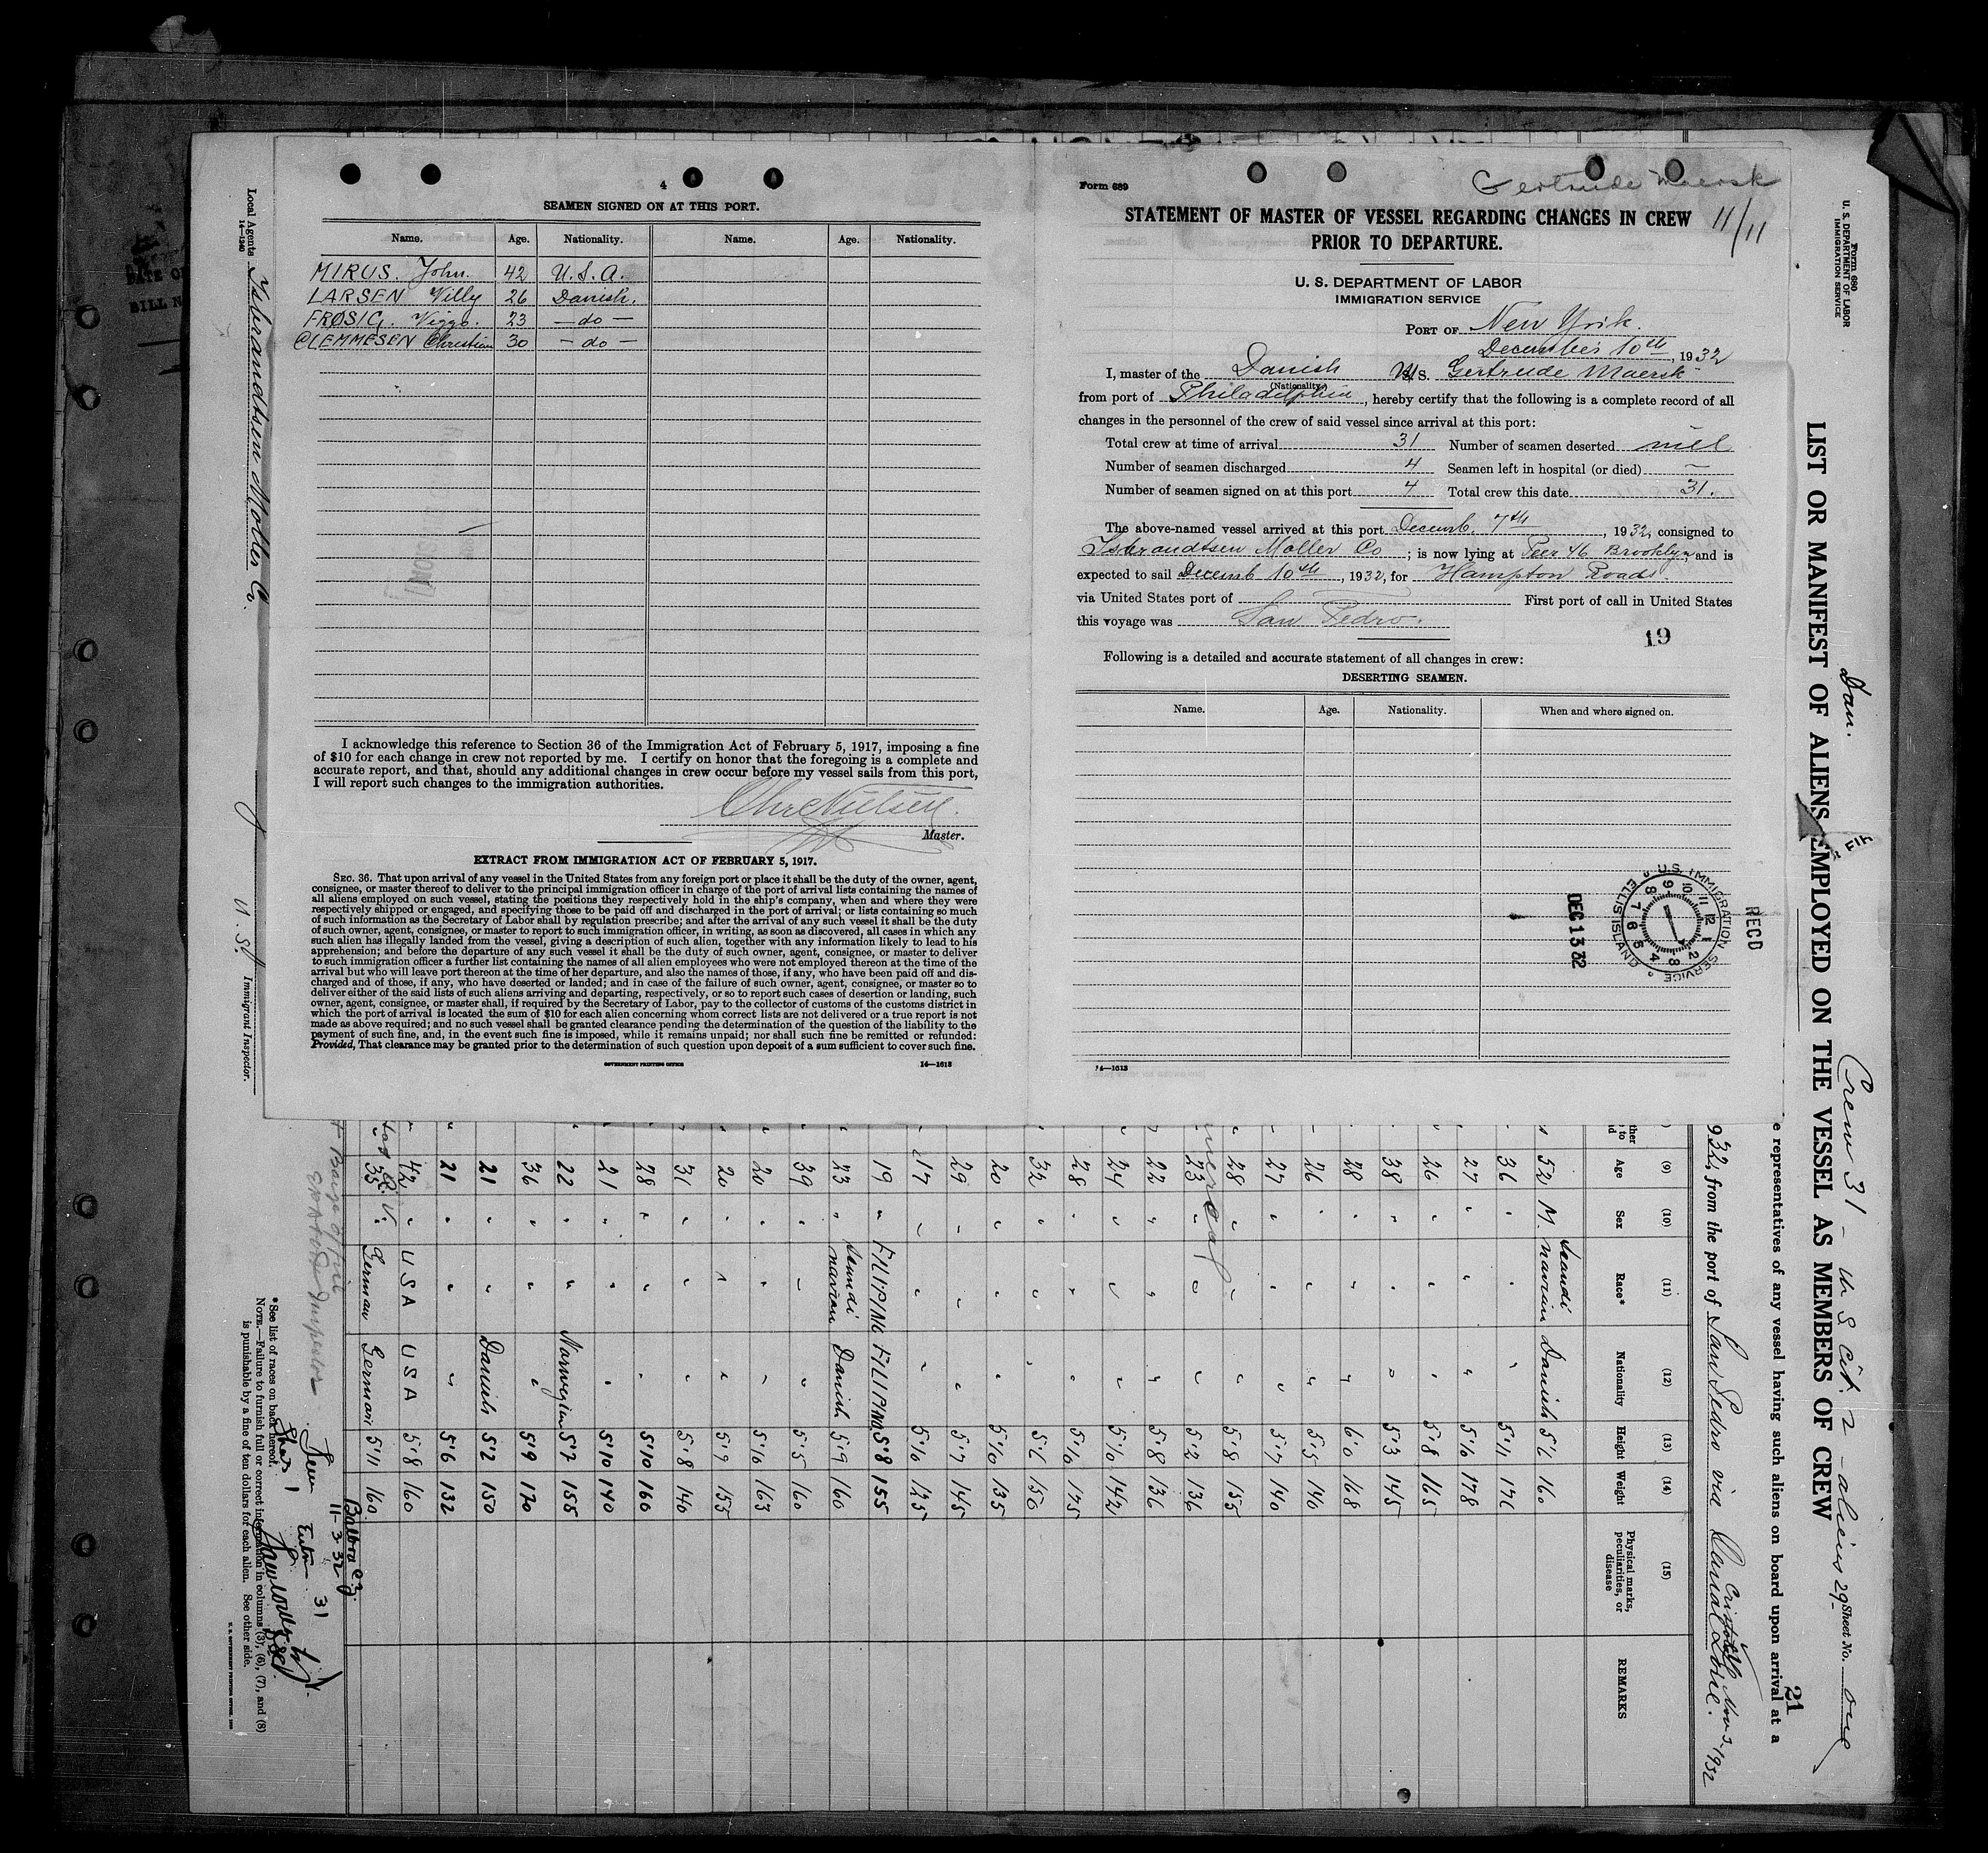 4
SEAMEN SIGNED ON AT THIS PORT.
Name. Age. Nationality. Name. Age. Nationality.
MIRUS. John. 42 U.S.A.
LARSEN Willy 26 Danish.
FRØSIG. Viggo. 23 — do —
CLEMMESEN Christian 30 — do —
I acknowledge this reference to Section 36 of the Immigration Act of February 5, 1917, imposing a fine
of $10 for each change in crew not reported by me. I certify on honor that the foregoing is a complete and
accurate report, and that, should any additional changes in crew occur before my vessel sails from this port,
I will report such changes to the immigration authorities.
Master.
EXTRACT FROM IMMIGRATION ACT OF FEBRUARY 5, 1917.
SEC. 36. That upon arrival of any vessel in the United States from any foreign port or place it shall be the duty of the owner, agent,
consignee, or master thereof to deliver to the principal immigration officer in charge of the port of arrival lists containing the names of
all aliens employed on such vessel, stating the positions they respectively hold in the ship's company, when and where they were
respectively shipped or engaged, and specifying those to be paid off and discharged in the port of arrival; or lists containing so much
of such information as the Secretary of Labor shall by regulation prescribe; and after the arrival of any such vessel it shall be the duty
of such owner, agent, consignee, or master to report to such immigration officer, in writing, as soon as discovered, all cases in which any
such alien has illegally landed from the vessel, giving a description of such alien, together with any information likely to lead to his
apprehension; and before the departure of any such vessel it shall be the duty of such owner, agent, consignee, or master to deliver
to such immigration officer a further list containing the names of all alien employees who were not employed thereon at the time of the
arrival but who will leave port thereon at the time of her departure, and also the names of those, if any, who have been paid off and dis-
charged and of those, if any, who have deserted or landed; and in case of the failure of such owner, agent, consignee, or master so to
deliver either of the said lists of such aliens arriving and departing, respectively, or so to report such cases of desertion or landing, such
owner, agent, consignee, or master shall, if required by the Secretary of Labor, pay to the collector of customs of the customs district in
which the port of arrival is located the sum of $10 for each alien concerning whom correct lists are not delivered or a true report is not
made as above required; and no such vessel shall be granted clearance pending the determination of the question of the liability to the
payment of such fine, and, in the event such fine is imposed, while it remains unpaid; nor shall such fine be remitted or refunded:
Provided, That clearance may be granted prior to the determination of such question upon deposit of a sum sufficient to cover such fine.
GOVERNMENT PRINTING OFFICE 14—1613
Form 689
Gertrude Maersk
STATEMENT OF MASTER OF VESSEL REGARDING CHANGES IN CREW
PRIOR TO DEPARTURE.
11/11
U. S. DEPARTMENT OF LABOR
IMMIGRATION SERVICE
PORT OF New York.
December 10th, 1932
I, master of the Danish M/S. Gertrude Maersk
(Nationality)
from port of Philadelphia, hereby certify that the following is a complete record of all
changes in the personnel of the crew of said vessel since arrival at this port:
Total crew at time of arrival 31 Number of seamen deserted niel
Number of seamen discharged 4 Seamen left in hospital (or died) —
Number of seamen signed on at this port 4 Total crew this date 31.
The above-named vessel arrived at this port Decemb. 7th, 1932, consigned to
Isbrandtsen Moller Co; is now lying at Peer 46 Brooklyn, and is
expected to sail Decemb 10th, 1932, for Hampton Roads.
via United States port of — First port of call in United States
this voyage was San Pedro.
19
Following is a detailed and accurate statement of all changes in crew:
DESERTING SEAMEN.
Name. Age. Nationality. When and where signed on.
U.S. IMMIGRATION SERVICE
ELLIS ISLAND
RECD
DEC 13 32
14—1613
Form 680
U. S. DEPARTMENT OF LABOR
IMMIGRATION SERVICE
Dan.
Crew 31 - U S cit. 2 - aliens 29
Sheet No. one
LIST OR MANIFEST OF ALIENS EMPLOYED ON THE VESSEL AS MEMBERS OF CREW
21
e representatives of any vessel having such aliens on board upon arrival at a
932, from the port of San Pedro via Canal Zone.
Cristobal Nov 3-1932
(9) (10) (11) (12) (13) (14) (15)
Age Sex Race* Nationality Height Weight Physical marks, peculiarities, or disease REMARKS
52 M. Scandinavian Danish 5'6 160
36 " " " 5'11 176
27 " " " 5'10 178
26 " " " 5'8 165
38 " " " 5'3 145
28 " " " 6'0 168
26 " " " 5'5 140
27 " " " 5'7 140
28 " " " 5'8 155
23 " " " 5'2 136
22 " " " 5'8 136
24 " " " 5'10 142
28 " " " 5'10 175
32 " " " 5'6 150
20 " " " 5'10 135
29 " " " 5'7 145
17 " " " 5'10 125
19 " FILIPINO FILIPINO 5'8 155
23 " Scandinavian Danish 5'9 160
39 " " " 5'5 160
20 " " " 5'10 163
20 " " " 5'7 155
31 " " " 5'8 140
28 " " " 5'10 160
21 " " " 5'10 140
22 " " Norwegian 5'7 155
36 " " " 5'9 170
21 " " Danish 5'2 150
21 " " " 5'6 132
42 " USA USA 5'8 160
35 German German 5'11 160
Balboa C.Z.
11-3-32
Inspector
* See list of races on back hereof.
NOTE.—Failure to furnish full or correct information in columns (3), (6), (7), and (8)
is punishable by a fine of ten dollars for each alien. See other side.
Local Agents Isbrandtsen Moller Co.
14—1240
U. S.
Immigrant Inspector.